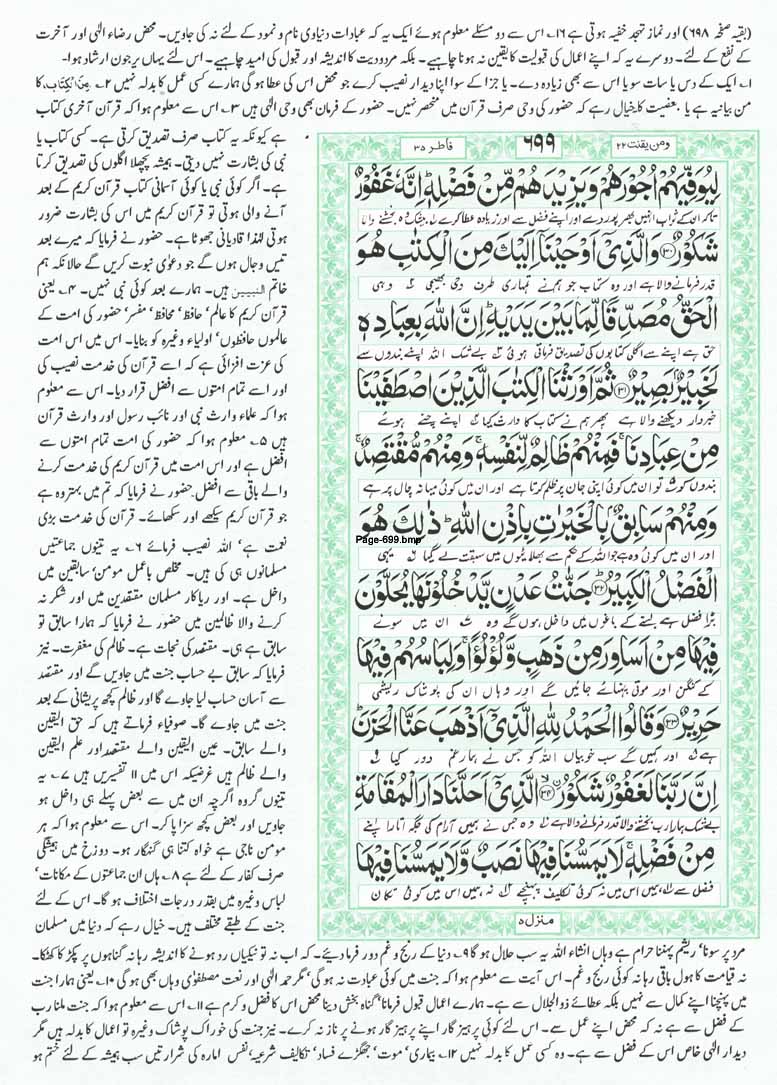 (بقیہ صفحہ ۶۹۸) اور نماز تہجد خفیہ ہوتی ہے ۱۶۔ اس سے دو مسئلے معلوم ہوئے ایک یہ کہ عبادات دنیاوی نام و نمود کے لئے نہ کی جاویں۔ محض رضاء الٰہی اور آخرت
کے نفع کے لئے۔ دوسرے یہ کہ اپنے اعمال کی قبولیت کا یقین نہ ہونا چاہیے۔ بلکہ مردودیت کا اندیشہ اور قبول کی امید چاہیے۔ اس لئے یہاں یرجون ارشاد ہوا۔
۱۔ ایک کے دس یا سات سو یا اس سے بھی زیادہ دے۔ یا جزا کے سوا اپنا دیدار نصیب کرے جو محض اس کی عطا ہو گی ہمارے کسی عمل کا بدلہ نہیں ۲۔ مِنَ الْكِتٰبِ کا
من بیانیہ ہے یا بعضیت کا خیال رہے کہ حضور کی وحی صرف قرآن میں منحصر نہیں۔ حضور کے فرمان بھی وحی الٰہی ہیں ۳۔ اس سے معلوم ہوا کہ قرآن آخری کتاب
ہے کیونکہ یہ کتاب صرف تصدیق کرتی ہے۔ کسی کتاب یا
نبی کی بشارت نہیں دیتی۔ ہمیشہ پچھلا اگلوں کی تصدیق کرتا
ہے۔ اگر کوئی نبی یا کوئی آسمانی کتاب قرآن کریم کے بعد
آنے والی ہوتی تو قرآن کریم میں اس کی بشارت ضرور
ہوتی لہٰذا قادیانی جھوٹا ہے۔ حضور نے فرمایا کہ میرے بعد
تیس دجال ہوں گے جو دعوٰی نبوت کریں گے حالانکہ ہم
خاتم النبیین ہیں۔ ہمارے بعد کوئی نبی نہیں۔ ۴۔ یعنی
قرآن کریم کا عالم، حافظ، محافظ، مفسر، حضور کی امت کے
عالموں حافظوں، اولیاء وغیرہ کو بنایا۔ اس میں اس امت
کی عزت افزائی ہے کہ اسے قرآن کی خدمت نصیب کی
اور اسے تمام امتوں سے افضل قرار دیا۔ اس سے معلوم
ہوا کہ علماء وارث نبی اور نائب رسول اور وارث قرآن
ہیں ۵۔ معلوم ہوا کہ حضور کی امت تمام امتوں سے
افضل ہے اور اس امت میں قرآن کریم کی خدمت کرنے
والے باقی سے افضل۔ حضور نے فرمایا کہ تم میں بہتر وہ ہے
جو قرآن کریم سیکھے اور سکھائے۔ قرآن کی خدمت بڑی
نعمت ہے، اللہ نصیب فرمائے ۶۔ یہ تینوں جماعتیں
مسلمانوں ہی کی ہیں۔ مخلص باعمل مومن، سابقین میں
داخل ہے۔ اور ریاکار مسلمان مقتصدین میں اور شکر نہ
کرنے والا ظالمین میں حضور نے فرمایا کہ ہمارا سابق تو
سابق ہے ہی۔ مقتصد کی نجات ہے۔ ظالم کی مغفرت۔ نیز
فرمایا کہ سابق بے حساب جنت میں جاویں گے اور مقتصد
سے آسان حساب لیا جاوے گا اور ظالم کچھ پریشانی کے بعد
جنت میں جاوے گا۔ صوفیاء فرماتے ہیں کہ حق الیقین
والے سابق۔ عین الیقین والے مقتصد اور علم الیقین
والے ظالم ہیں غرضیکہ اس میں ۱۱ تفسیریں ہیں ۷۔ یہ
تینوں گروہ اگرچہ ان میں سے بعض پہلے ہی داخل ہو
جاویں اور بعض کچھ سزا پا کر۔ اس سے معلوم ہوا کہ ہر
مومن ناجی ہے خواہ کتنا ہی گنہگار ہو۔ دوزخ میں ہمیشگی
صرف کفار کے لئے ہے ۸۔ ہاں ان جماعتوں کے مکانات،
لباس وغیرہ میں بقدر درجات اختلاف ہو گا۔ اس کے لئے
جنت کے طبقے مختلف ہیں۔ خیال رہے کہ دنیا میں مسلمان
ومن یقنت ۲۲
۶۹۹
فاطر ۳۵
لِيُوَفِّيَهُمْ اُجُوْرَهُمْ وَيَزِيْدَهُمْ مِّنْ فَضْلِهٖ اِنَّهٗ غَفُوْرٌ
تاکہ ان کے ثواب انہیں بھرپور دے اور اپنے فضل سے اور زیادہ عطا کرے بیشک وہ بخشنے والا
شَكُوْرٌ ۳۰ وَالَّذِيْٓ اَوْحَيْنَآ اِلَيْكَ مِنَ الْكِتٰبِ هُوَ
قدر فرمانے والا ہے اور وہ کتاب جو ہم نے تمہاری طرف وحی بھیجی وہی
الْحَقُّ مُصَدِّقًا لِّمَا بَيْنَ يَدَيْهِ اِنَّ اللّٰهَ بِعِبَادِهٖ
حق ہے اپنے سے اگلی کتابوں کی تصدیق فرماتی ہوئی بے شک اللہ اپنے بندوں سے
لَخَبِيْرٌۢ بَصِيْرٌ ۳۱ ثُمَّ اَوْرَثْنَا الْكِتٰبَ الَّذِيْنَ اصْطَفَيْنَا
خبردار دیکھنے والا ہے پھر ہم نے کتاب کا وارث کیا اپنے چنے ہوئے
مِنْ عِبَادِنَا فَمِنْهُمْ ظَالِمٌ لِّنَفْسِهٖ وَمِنْهُمْ مُّقْتَصِدٌ
بندوں کو تو ان میں کوئی اپنی جان پر ظلم کرتا ہے اور ان میں کوئی میانہ چال پر ہے
وَمِنْهُمْ سَابِقٌۢ بِالْخَيْرٰتِ بِاِذْنِ اللّٰهِ ذٰلِكَ هُوَ
Page-699.bmp
اور ان میں کوئی وہ ہے جو اللہ کے حکم سے بھلائیوں میں سبقت لے گیا یہی
الْفَضْلُ الْكَبِيْرُ ۳۲ جَنّٰتُ عَدْنٍ يَّدْخُلُوْنَهَا يُحَلَّوْنَ
بڑا فضل ہے بسنے کے باغوں میں داخل ہوں گے وہ ان میں سونے
فِيْهَا مِنْ اَسَاوِرَ مِنْ ذَهَبٍ وَّلُؤْلُؤًا وَلِبَاسُهُمْ فِيْهَا
کے کنگن اور موتی پہنائے جائیں گے اور وہاں ان کی پوشاک ریشمی
حَرِيْرٌ ۳۳ وَقَالُوا الْحَمْدُ لِلّٰهِ الَّذِيْٓ اَذْهَبَ عَنَّا الْحَزَنَ
ہے اور کہیں گے سب خوبیاں اللہ کو جس نے ہمارا غم دور کیا
اِنَّ رَبَّنَا لَغَفُوْرٌ شَكُوْرُ ۳۴ الَّذِيْٓ اَحَلَّنَا دَارَ الْمُقَامَةِ
بے شک ہمارا رب بخشنے والا قدر فرمانے والا ہے وہ جس نے ہمیں آرام کی جگہ اتارا اپنے
مِنْ فَضْلِهٖ لَا يَمَسُّنَا فِيْهَا نَصَبٌ وَّلَا يَمَسُّنَا فِيْهَا
فضل سے ہمیں اس میں نہ کوئی تکلیف پہنچے نہ ہمیں اس میں کوئی تکان
منزل ۵
مرد پر سونا، ریشم پہننا حرام ہے وہاں انشاء اللہ یہ سب حلال ہو گا ۹۔ دنیا کے رنج و غم دور فرما دیئے۔ کہ اب نہ تو نیکیاں رد ہونے کا اندیشہ رہا نہ گناہوں پر پکڑ کا کھٹکا۔
نہ قیامت کا ہول باقی رہا نہ کوئی رنج و غم۔ اس آیت سے معلوم ہوا کہ جنت میں کوئی عبادت نہ ہو گی، مگر حمد الٰہی اور نعت مصطفوٰی وہاں بھی ہو گی ۱۰۔ یعنی ہمارا جنت
میں پہنچنا اپنے کمال سے نہیں بلکہ عطائے ذوالجلال سے ہے۔ ہمارے اعمال قبول فرمانا، گناہ بخش دینا محض اس کا فضل و کرم ہے ۱۱۔ اس سے معلوم ہوا کہ جنت ملنا رب
کے فضل سے ہے نہ کہ محض اپنے عمل سے۔ اس لئے کوئی پرہیز گار اپنے پرہیز گار ہونے پر ناز نہ کرے۔ نیز جنت کی خوراک پوشاک وغیرہ تو اعمال کا بدلہ ہیں مگر
دیدار الٰہی خاص اس کے فضل سے ہے۔ وہ کسی عمل کا بدلہ نہیں ۱۲۔ بیماری، موت، جھگڑے فساد، تکالیف شرعیہ، نفس امارہ کی شرارتیں سب ہمیشہ کے لئے ختم ہو